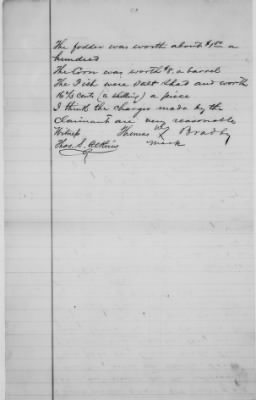 The fodder was worth about $1.00 a
hundred
The Corn was worth $5. a barrel
The Fish were Salt Shad and worth
16⅔ cents (a shilling) a piece
I think the charges made by the
claimant are very reasonable
Witness Thomas his X Bradby
Thos. S. Atkins mark